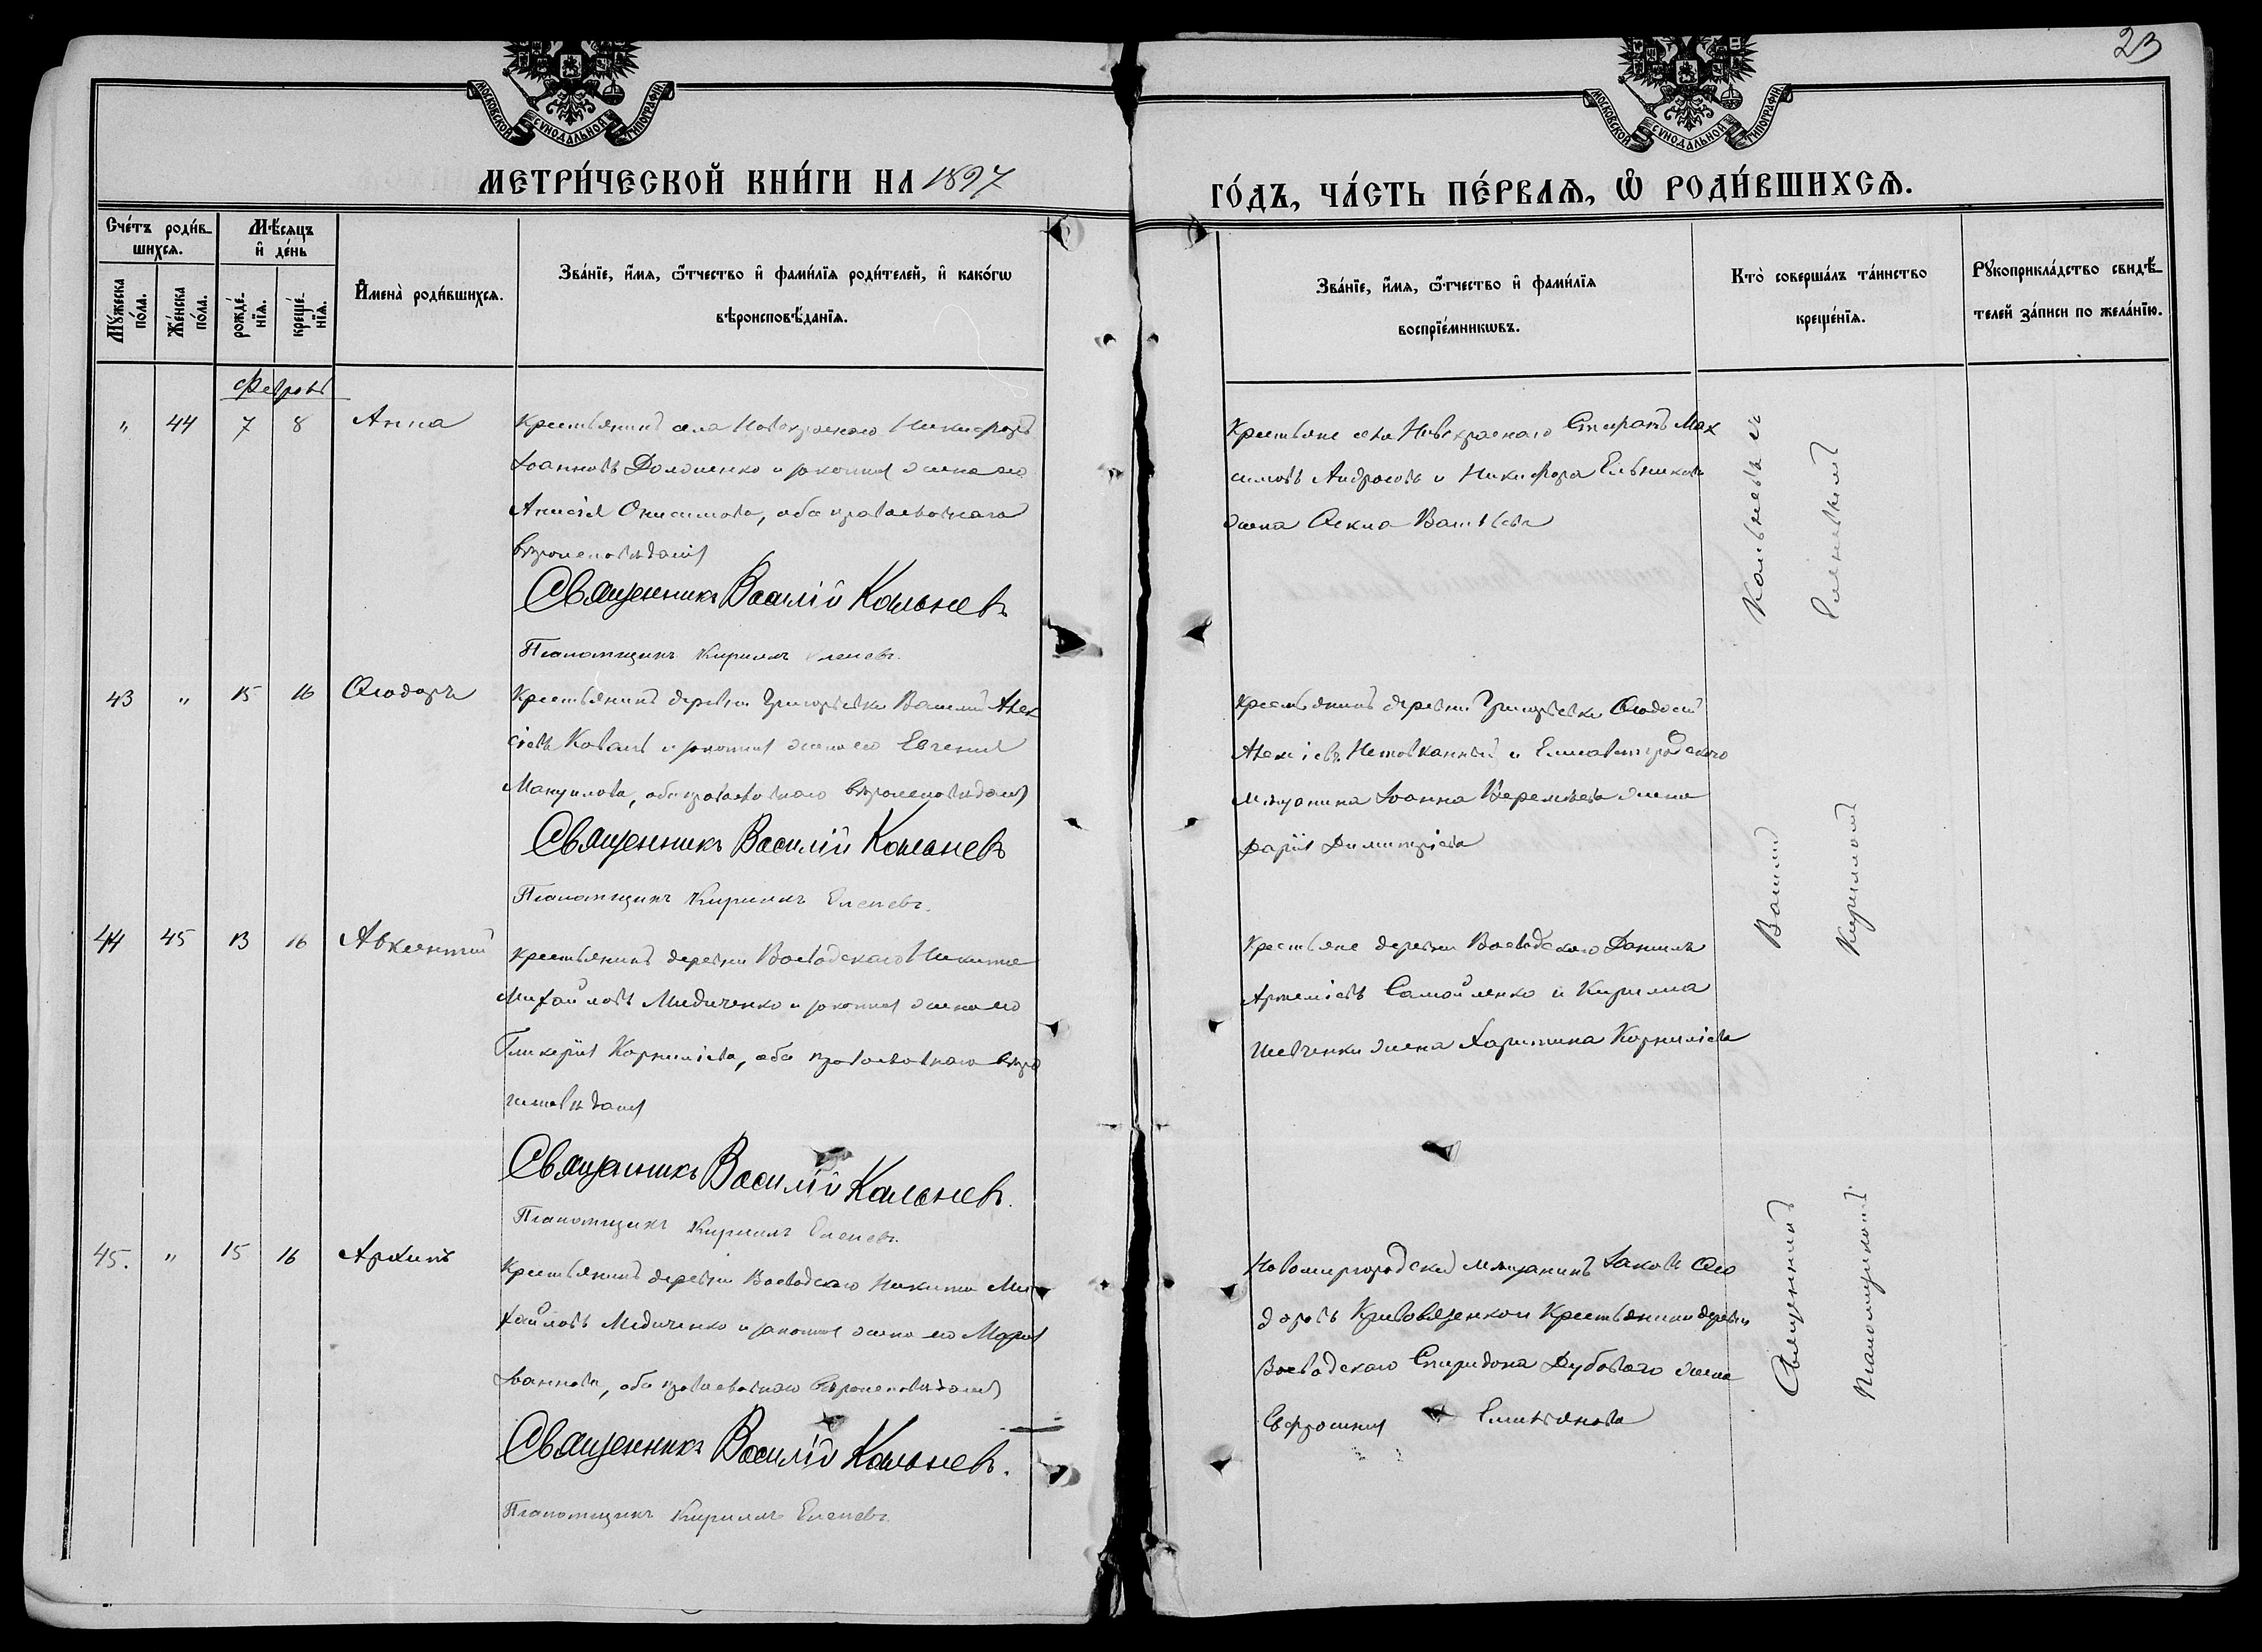 23
МОСКОВСКОЙ СѴНОДАЛЬНОЙ ТИПОГРАФІИ
МОСКОВСКОЙ СѴНОДАЛЬНОЙ ТИПОГРАФІИ
МЕТРИ́ЧЕСКОЙ КНИ́ГИ НА 1897
ГО́ДЪ, ЧА́СТЬ ПЕ́РВАѦ, Ѡ҆ РОДИ́ВШИХСѦ.
Сче́тъ роди́в-
шихсѧ.
Мѣ́сяцъ
и҆ де́нь
Мꙋ́жеска
по́ла.
Же́нска
по́ла.
рожде́-
нїѧ.
креще́-
нїѧ.
И҆мена̀ роди́вшихсѧ.
Зва́нїе, и҆́мѧ, ѻ҆́тчество и҆ фами́лїѧ роди́телей, и҆ како́гѡ
вѣроисповѣ́данїѧ.
Зва́нїе, и҆́мѧ, ѻ҆́тчество и҆ фами́лїѧ
воспрїе́мникѡвъ.
Кто̀ соверша́лъ та́инство
креще́нїѧ.
Рꙋкоприкла́дство свидѣ́-
телей за́писи по жела́нїю.
Февраль
" 44 7 8 Анна
Крестьянинъ села Новокраснаго Никифоръ
Іоанновъ Доломенко и законная жена его
Анисія Онисимова, оба православнаго
вѣроисповѣданія
Священникъ Василій Кольневъ
Псаломщикъ Кириллъ Еленевъ.
Крестьяне села Новокраснаго Стефанъ Мак
симовъ Андросовъ и Никифора Ельникова
жена Ѳекла Васильева
43 " 15 16 Ѳеодоръ
Крестьянинъ деревни Григорьевки Василій Алек
сіевъ Коваль и законная жена его Евгенія
Мануилова, оба православнаго вѣроисповѣданія
Священникъ Василій Кольневъ
Псаломщикъ Кириллъ Еленевъ.
Крестьянинъ деревни Григорьевки Ѳеодосій
Алексіевъ Нетовканный и Елисаветградскаго
мѣщанина Іоанна Веремѣева жена
Дарія Димитріева
44 45 13 16 Авксентій
Крестьянинъ деревни Воеводскаго Никита
Михайловъ Мидиченко и законная жена его
Гликерія Корниліева, оба православнаго вѣро
исповѣданія
Священникъ Василій Кольневъ.
Псаломщикъ Кириллъ Еленевъ.
Крестьяне деревни Воеводскаго Даніилъ
Артеміевъ Самойленко и Кирилла
Шевченки жена Харитина Корниліева
45. " 15 16 Архипъ
Крестьянинъ деревни Воеводскаго Никита Ми
хайловъ Мидиченко и законная жена его Марія
Іоаннова, оба православнаго вѣроисповѣданія
Священникъ Василій Кольневъ.
Псаломщикъ Кириллъ Еленевъ.
Новомиргородскій мѣщанинъ Іаковъ Ѳео
доровъ Кривовязенко и Крестьянина деревни
Воеводскаго Спиридона Дубоваго жена
Евфросинія Емиліанова
Священникъ Василій Кольневъ съ
Псаломщикомъ Кирилломъ Еленевымъ